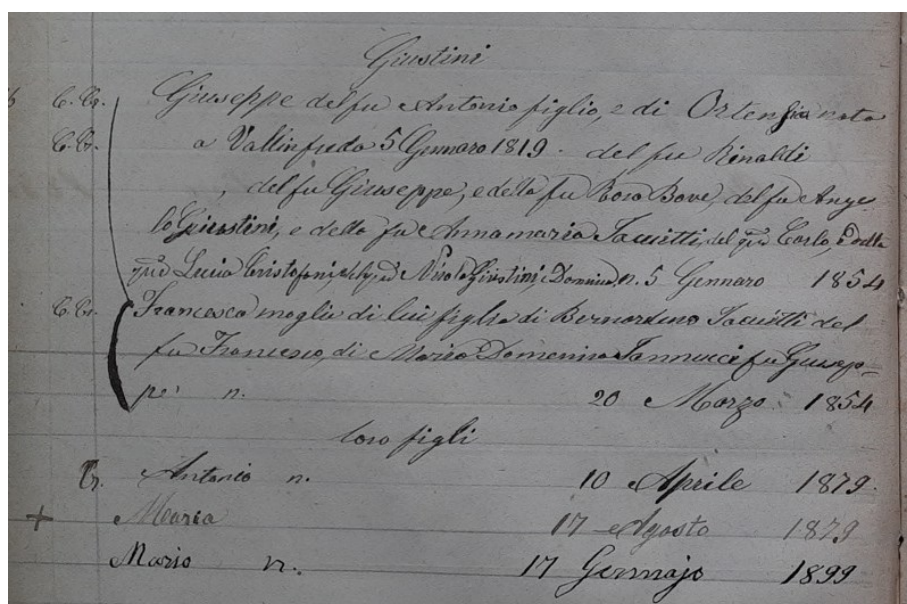 Giustini
C. Cr. Giuseppe del fu Antonio figlio, e di Ortensia nata
C. Cr. a Vallinfreda 5 Gennaro 1819. del fu Rinaldi
, del fu Giuseppe, e della fu Rosa Bove, del fu Ange
lo Giustini, e della fu Annamaria Iacuitti, del qd Carlo, e della
qd Lucia Cristofani, del qd Giustini, n. 5 Gennaro 1854
C. Cr. Francesca moglie di lui figlia di Bernardino Iacuitti del
fu Francesco, di Maria Domenica Iannucci fu Giusep=
pe n. 20 Marzo 1854
loro figli
Cr. Antonio n. 10 Aprile 1879.
+ Maria 17 Agosto 1879
Mario n. 17 Gennajo 1899